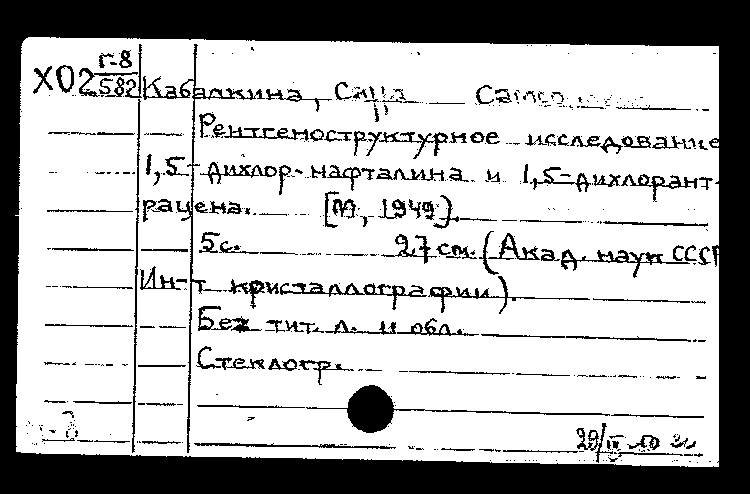 Х02 Г-8/582
Кабалкина, Сарра
Рентгеноструктурное исследование
1,5-дихлор-нафталина и 1,5-дихлорант-
рацена. [М, 1949].
5с. 27 см. (Акад. наук СССР
Ин-т кристаллографии).
Без тит. л. и обл.
Стеклогр.
29/IX-50